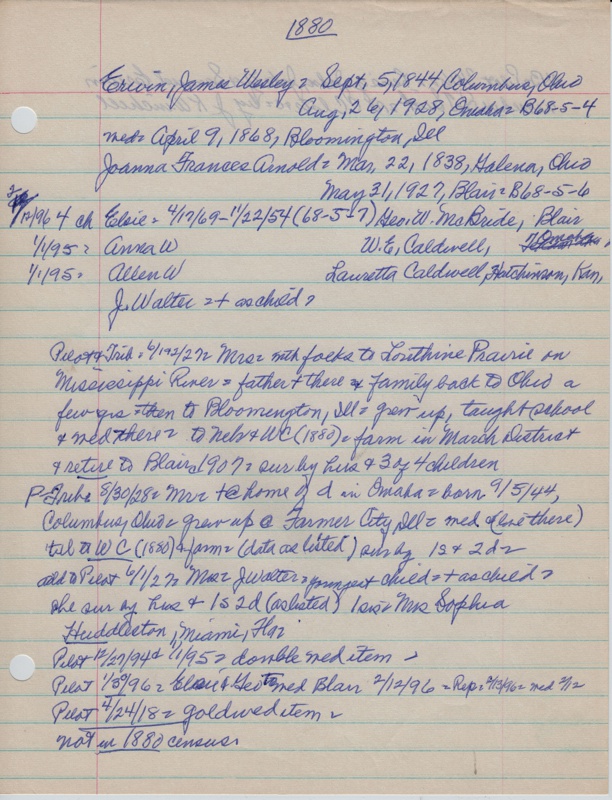 1880
Erwin, James Wesley = Sept. 5, 1844, Columbus, Ohio
Aug, 26, 1928, Omaha = B68-5-4
med = April 9, 1868, Bloomington, Ill
Joanna Frances Arnold = Mar, 22, 1838, Galena, Ohio
May 31, 1927, Blair = B68-5-6
2/12/96 4 ch Elsie = 4/17/69-11/22/54 (68-5-7) Geo. W. McBride, Blair
1/1/95 = Anna W W.E. Caldwell, Omaha
1/1/95 = Allen W Lauretta Caldwell, Hutchinson, Kan,
J. Walter = + as child =
Pilot & Trib = 6/1 27 = Mrs = with folks to Prairie on
Mississippi River = father + there & family back to Ohio a
few yrs = then to Bloomington, Ill = grew up, taught school
& med there = to Neb & WC (1880) = farm in March District
& retire to Blair 1907 = sur by hus & 3 of 4 children
P-Tribe 8/30/28 = Mr = + @ home of d in Omaha = born 9/5/44,
Columbus, Ohio = grew up @ Farmer City, Ill = med & (live there)
til to WC (1880) & farm = (data as listed) sur by 1s & 2d =
add to Pilot 6/1/27 = Mrs = J Walter = youngest child = + as child =
she sur by hus & 1s 2d (as listed) 1 sis = Mrs Sophia
Huddleston, Miami, Fla
Pilot 12/27/94 & 1/1/95 = double med item =
Pilot 1/30/96 = Elsie & Geo to med Blair 2/12/96 = Rep = 2/13/96 = med 2/12
Pilot 4/24/18 = gold wed item =
not in 1880 census.